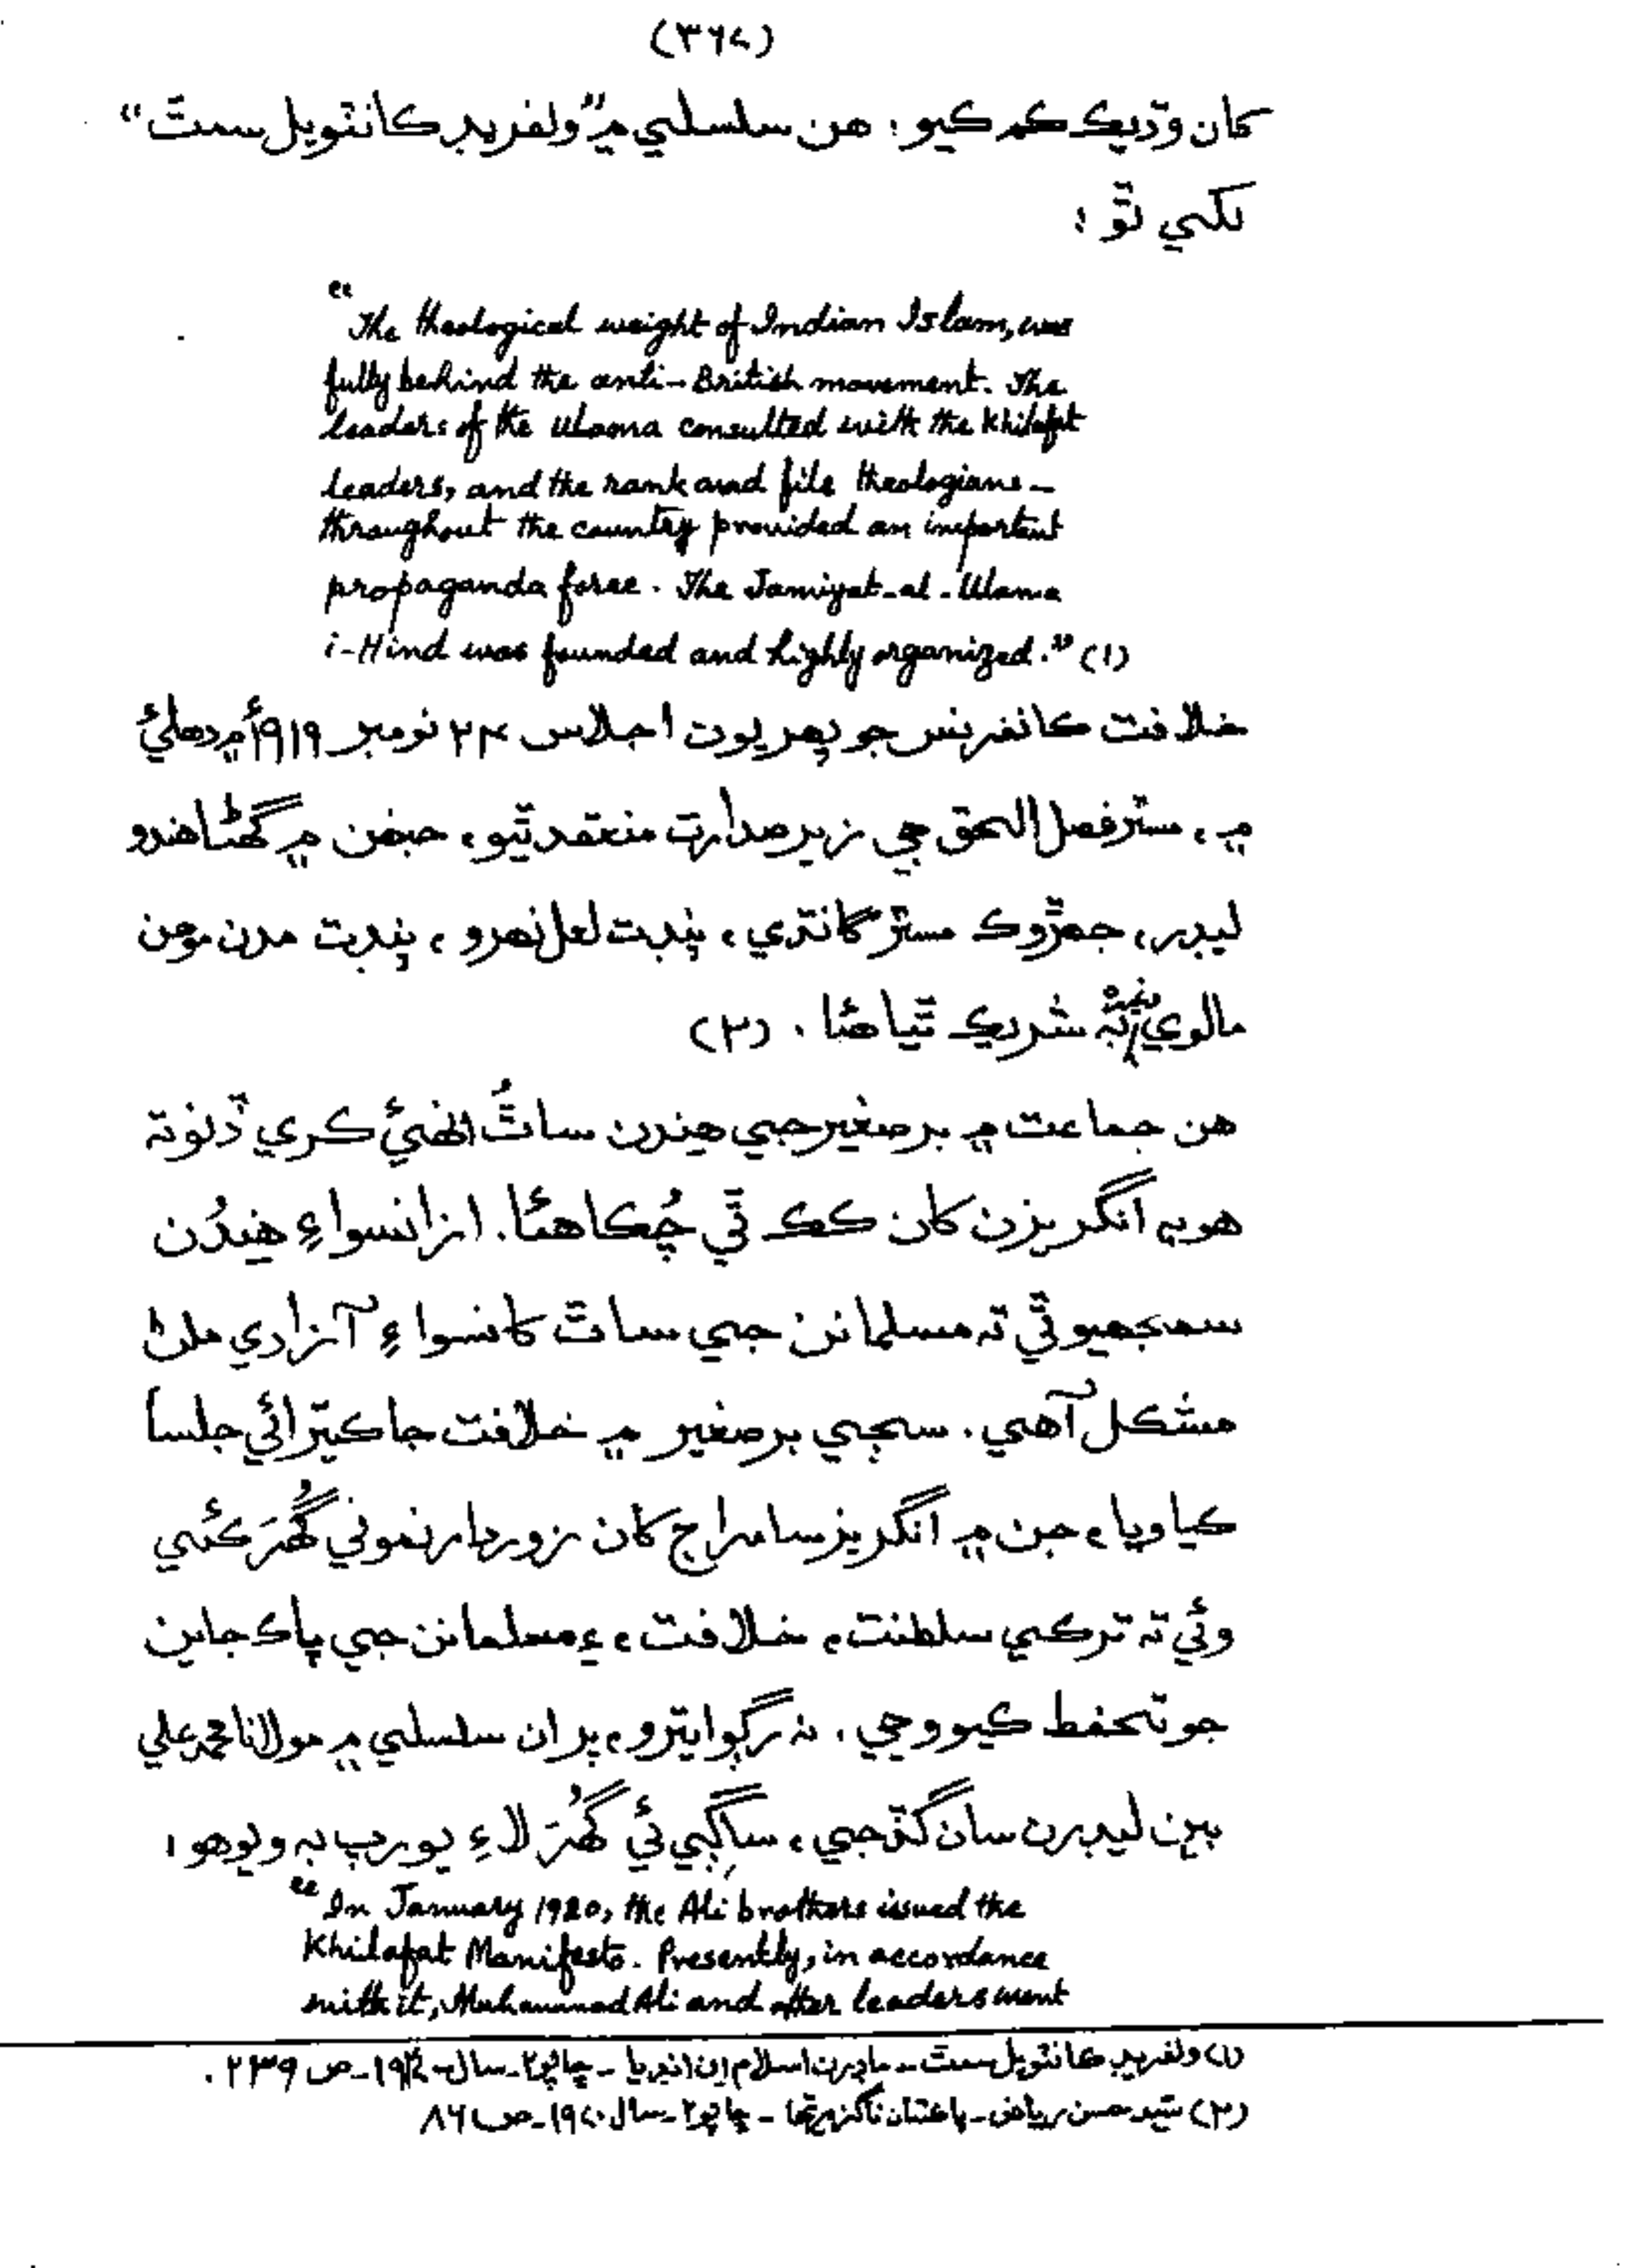 (۳۶۷)
کان وڌيڪ ڪم ڪيو؛ هن سلسلي ۾ ”ولفريڊ ڪانٽويل سمٿ“
لکي ٿو؛
“The theological weight of Indian Islam, was
fully behind the anti-British movement. The
leaders of the ulama consulted with the Khilafat
leaders, and the rank and file theologians-
throughout the country provided an important
propaganda force. The Jamiyat-al-Ulama
i-Hind was founded and highly organized.” (۱)
خلافت ڪانفرنس جو پهريون اجلاس ۲۴ نومبر ۱۹۱۹ع ۾ دهلي
۾، مسٽر فضل الحق جي زير صدارت منعقد ٿيو، جنهن ۾ گھڻا هندو
ليڊر، جهڙوڪ مسٽر گانڌي، پنڊت لعل نهرو، پنڊت مدن موهن
مالوي وغيره به شريڪ ٿيا هئا. (۲)
هن جماعت ۾ برصغير جي هندن ساٿُ انهيءَ ڪري ڏنو ته
هو به انگريزن کان ڪڪ ٿي چُڪا هئا. ازانسواءِ هندُن
سمجهيو ٿي ته مسلمانن جي ساٿ کانسواءِ آزادي ملڻ
مشڪل آهي. سڄي برصغير ۾ خلافت جا ڪيترائي جلسا
ڪيا ويا، جن ۾ انگريز سامراج کان زوردار نموني گھُرَ ڪئي
وئي ته ترڪي سلطنت، خلافت، ۽ مسلمانن جي پاڪ جاين
جو تحفظ ڪيو وڃي. نه رڳو ايترو، پر ان سلسلي ۾ مولانا محمد علي
ٻين ليڊرن سان گڏجي، ساڳي ئي گھُرَ لاءِ يورپ به ويو هو؛
“In January 1920, the Ali brothers issued the
Khilafat Manifesto. Presently, in accordance
with it, Muhammad Ali and other leaders went
(۱) ولفريڊ ڪانٽويل سمٿ - ماڊرن اسلام ان انڊيا - ڇاپو ۲ - سال - ص ۲۳۹.
(۲) سيد حسن رياض - پاڪستان ناگزير تھا - ڇاپو ۲ - سال ۱۹۷۰ - ص ۸۶